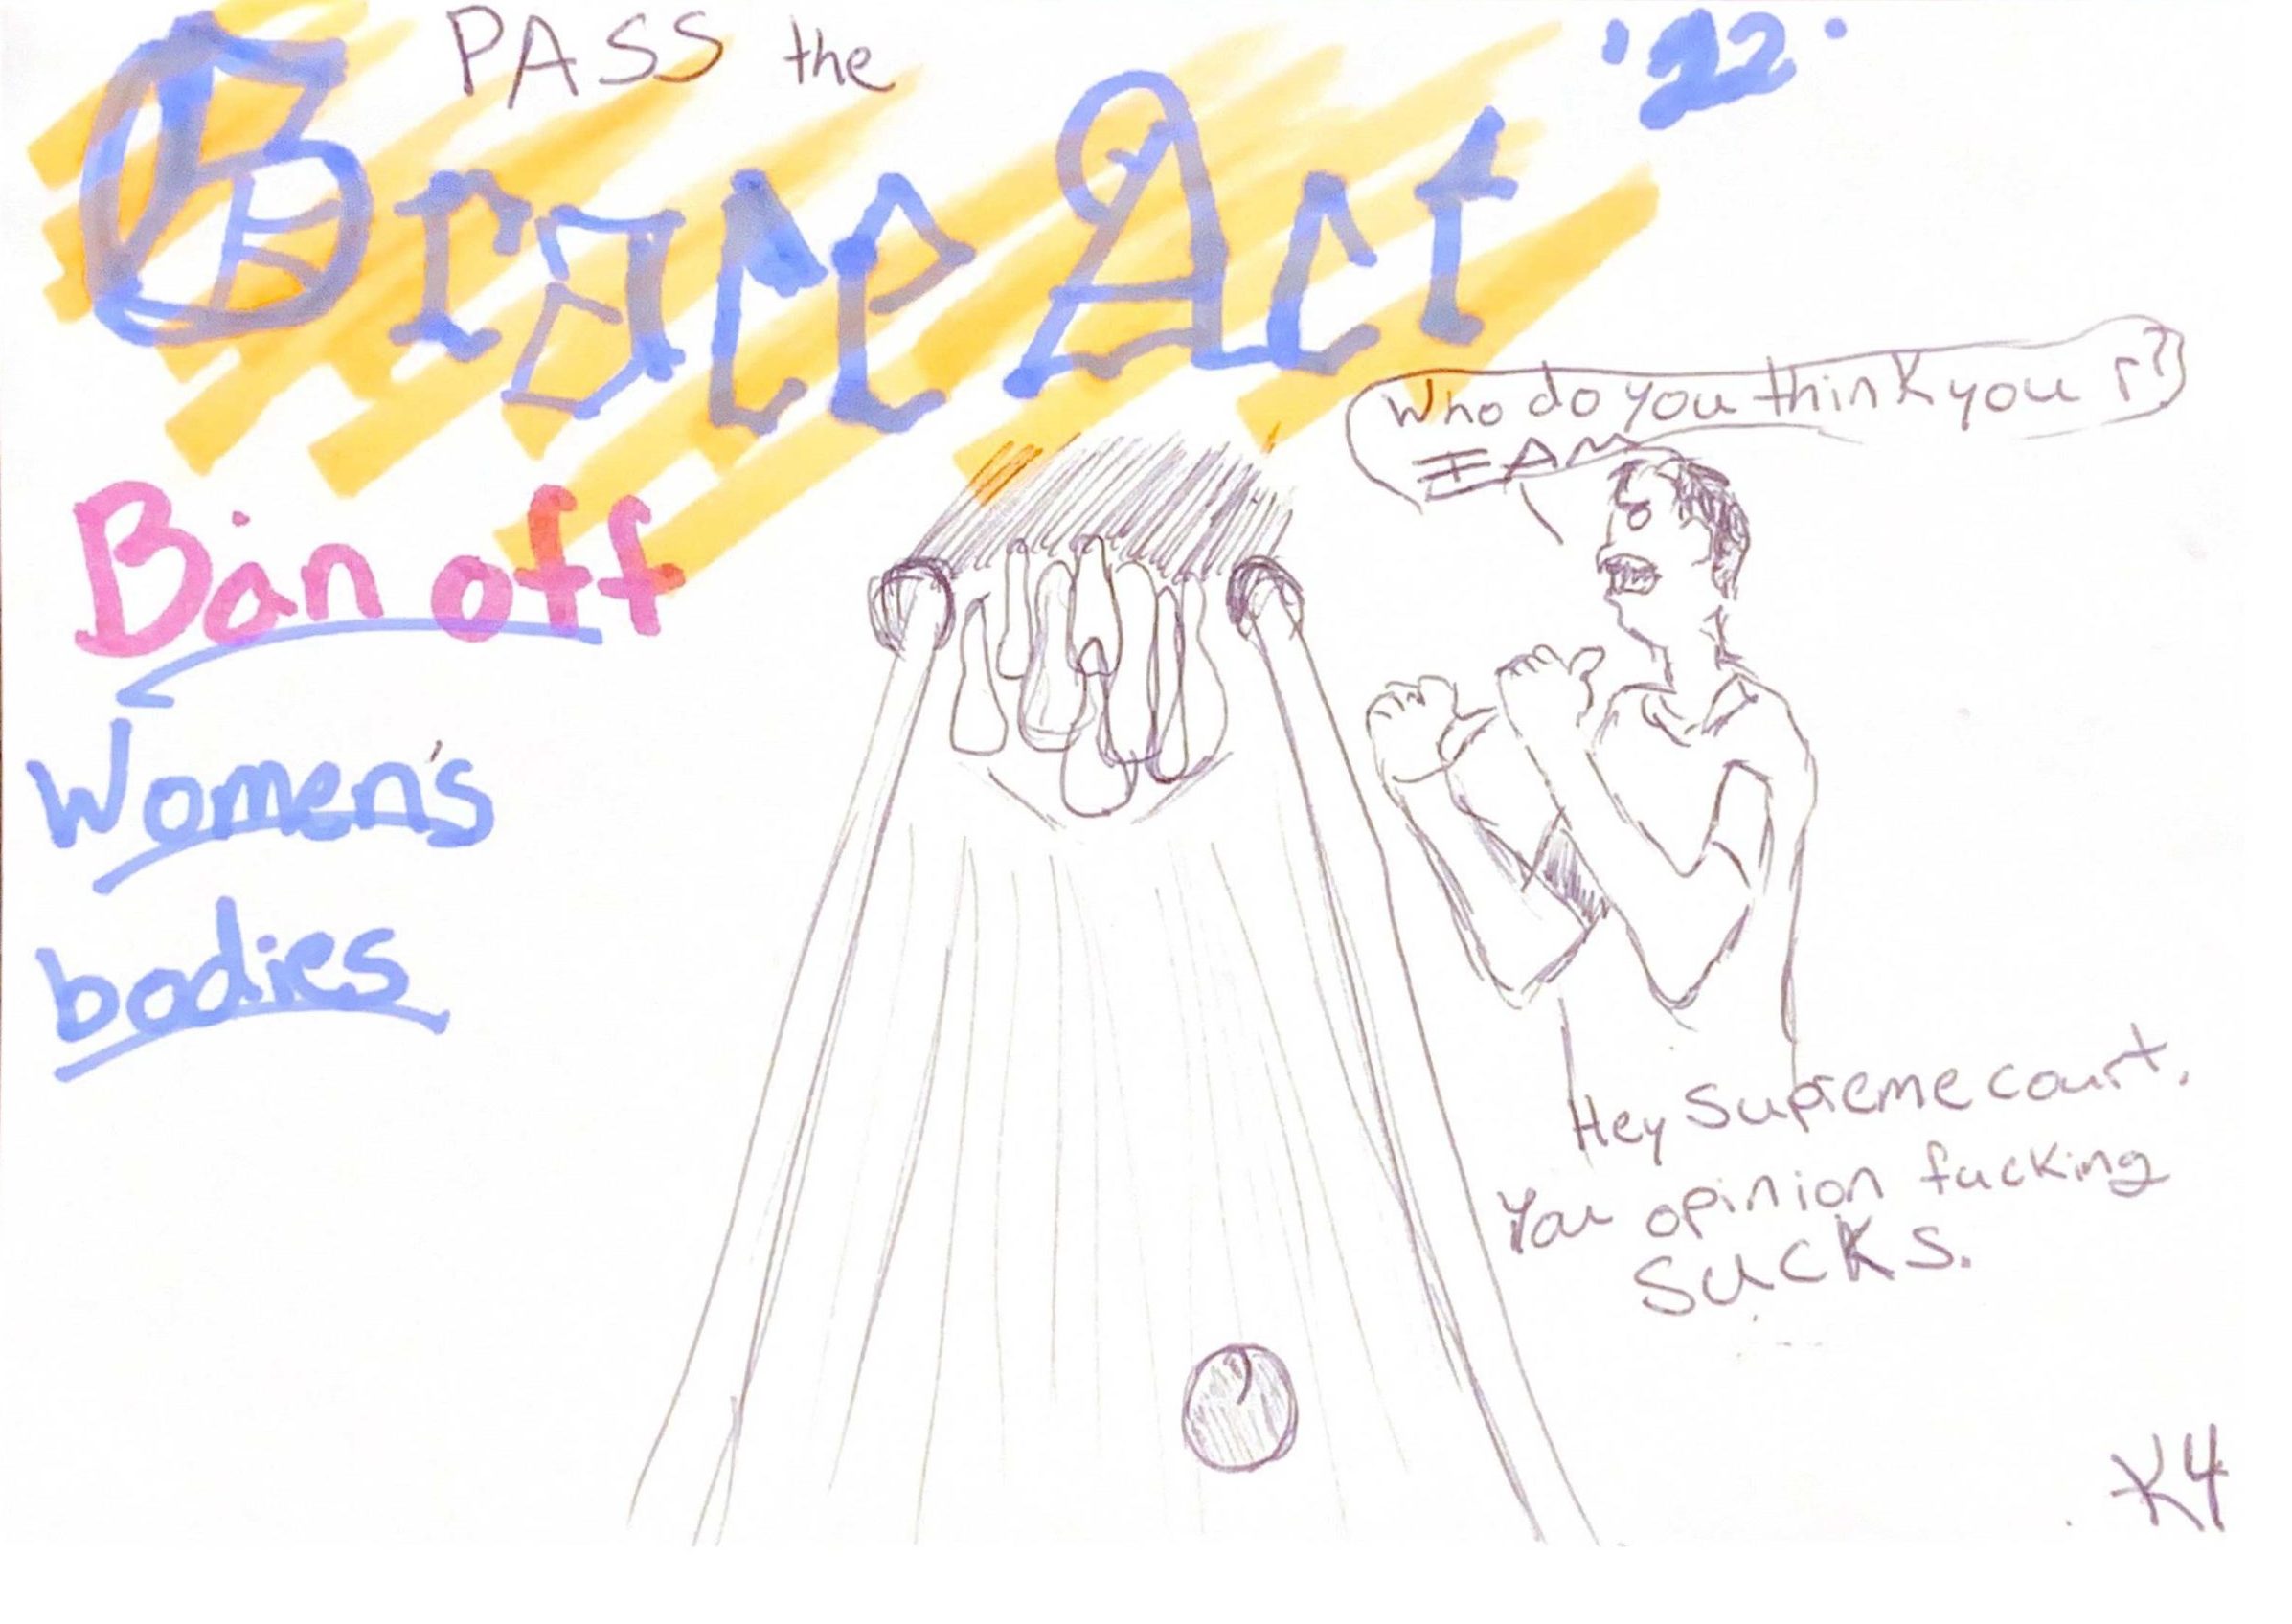 PASS the
Grace Act
'22'
Ban off
Women's
bodies
Who do you think you r?
I AM
Hey Supreme court,
You opinion fucking
SUCKS.
K4